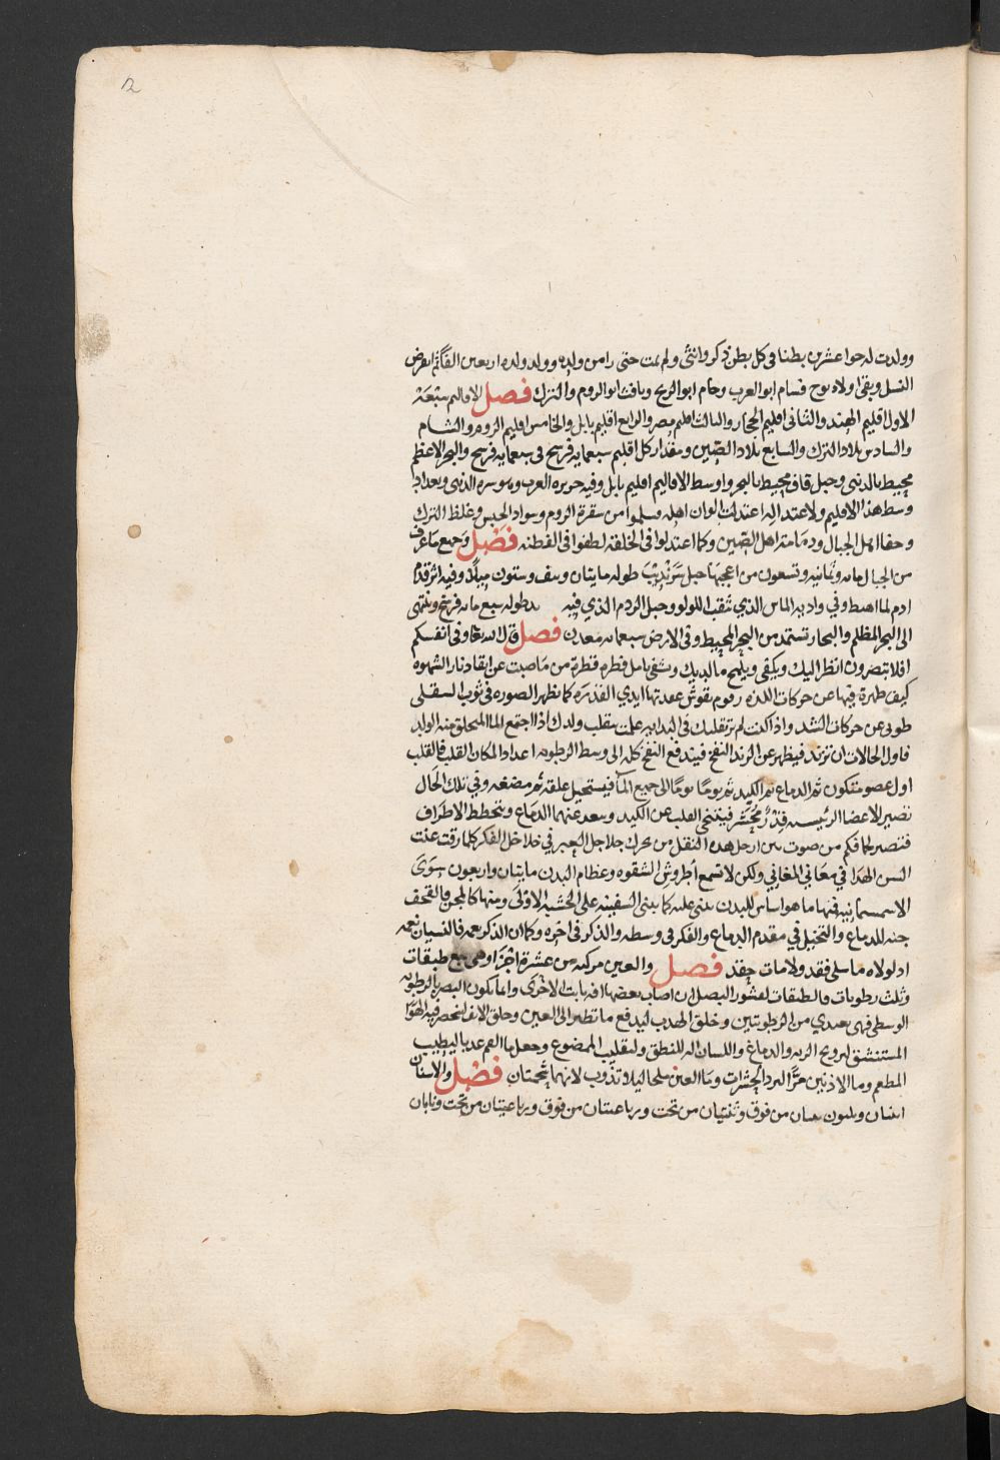 12
وولدت له حوا عشرين بطنا فى كل بطن ذكر وانثى ولم يمت حتى رامن ولده وولد ولده اربعين الفا ثم انقرض
النسل وبقى اولاد نوح فسام ابو العرب وحام ابو الزنج ويافث ابو الروم والترك فصل الاقاليم سبعة
الاول اقليم الهند والثانى اقليم الحجاز والثالث اقليم مصر والرابع اقليم بابل والخامس اقليم الروم والشام
والسادس بلاد الترك والسابع بلاد الصين ومقدار كل اقليم سبعمايه فرسخ فى سبعمايه فرسخ والبحر الاعظم
محيط بالدنيى وجبل قاف محيط بالبحر واوسط الاقاليم اقليم بابل وفيه جزيره العرب وهو سره الدنيى وبغداد
وسط هذا الاقليم ولاعتداله اعتدلت الوان اهله فسلموا من شقرة الروم وسواد الحبس وغلظ الترك
وجفا اهل الجبال ودمامة اهل الصين وكما اعتدلوا فى الخلقه لطفوا فى الفطنه فصل وجميع ما عرف
من الجبال مايه وثمانيه وتسعون من اعجبها جبل سرنديب طوله مايتان ونيف وستون ميلا وفيه اثر قدم
ادم لما اهبط وفي واديه الماس الذي تثقب اللولو وجبل الردم الذي فيه طوله سبع مايه فرسخ وينتهى
الى البحر المظلم والبحار تستمد من البحر المحيط وفى الارض سبعمايه معدن فصل قال الله تعا وفى انفسكم
افلا تبصرون انظر اليك ويكفى ويلمح مالديك وتشفى تامل فطره قطرة من ماصبت عن ايقاد نار الشهوه
كيف طهرة فيها عن حركات اللذه رقوم نقوش عقدتها ايدي القدره كما تظهر الصوره فى ثوب السقلى
طوى عن حركات الشد واذا كنت لم تر تقلبك فى البدايه علمت بتقلب ولدك اذا اجتمع الما المتخلق منه الولد
فاول الحالات ان تزند فيظهر عن الزند النفخ فيندفع النفخ كله الى وسط الرطوبه اعدادا لمكان القلب فالقلب
اول عضو متكون ثم الدماغ ثم الكبد ثم يوما يوما الى جميع الما فيستحيل علقه ثم مضغه وفي تلك الحال
تصير الاعضا الرئيسه قدر محشر فيتنحى القلب عن الكبد وبعد عنهما الدماغ وتخطط الاطراف
فتصير لحما فكم من صوت بين ارجل هذه النقل من تحرك جلاجل العبر في خلاخل الفكر كلما رقت غنت
السن الهدا في معاني المغانى ولكن لا تسمع اطروش الشقوه وعظام البدن مايتان واربعون سوى
السمسمانيه فمنها ما هو اساس للبدن بنى عليه كما يبنى السفينه على الخشبه الاولى ومنها كالمجن فالقحف
جنه للدماغ والتخيل في مقدم الدماغ والفكر فى وسطه والذكر فى اخره وكما ان الذكر نعمه فالنسيان نعمه
اذ لولاه ما سلى فقد ولا مات حقد فصل والعين مركبه من عشرة اجزا وهى سبع طبقات
وثلث رطوبات فالطبقات كقشور البصل ان اصاب بعضها افه نابت الاخرى وانما يكون البصر بالرطوبه
الوسطى فهى بعدي من الرطوبتين وخلق الهدب ليدفع ما تطير الى العين وخلق الانف لتحصر فيه الهوا
المستنشق لترويح الريه والدماغ واللسان اله للنطق ولتقليب الممضوع وجعل ما الفم عذبا ليطيب
المطعم وما الاذنين مرا لترد الحشرات وما العين ملحا ليلا تذوب لانهما شحمتان فصل والاسنان
اثنان وثلثون ثنيتان من فوق وثنيتان من تحت ورباعيتان من فوق ورباعيتان من تحت ونابان